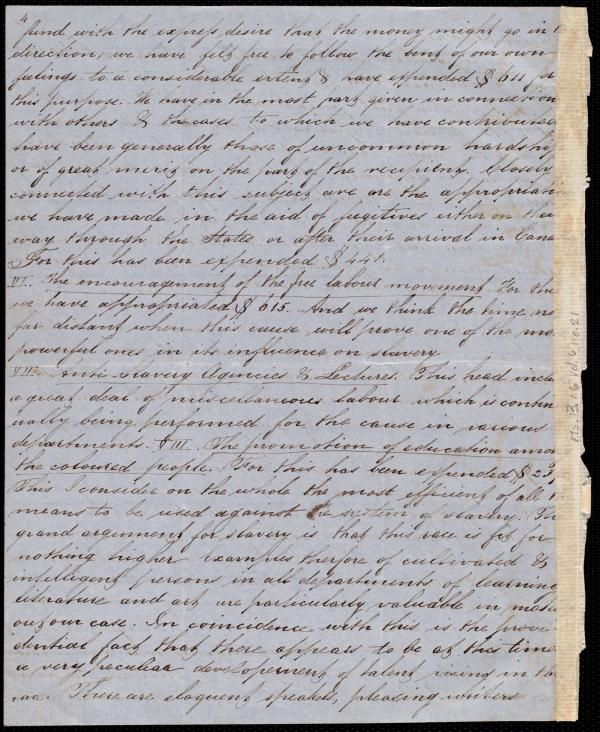 4
fund with the express desire that the money might go in
direction, we have felt free to follow the bent of our own
feelings to a considerable extent & have expended $ 611 for
this purpose. We have in the most part given in connexion
with others & the cases to which we have contributed
have been generally those of uncommon hardship
or of great merit on the part of the recipient. Closely
connected with this subject are the appropriat
we have made in the aid of fugitives either on their
way through the States or after their arrival in Cana
For this has been expended $ 441.
The encouragement of the free labour movement. For the
we have appropriated $ 615. And we think the time no
far distant when this cause will prove one of the mo
powerful ones in its influence on slavery
VII. Anti-slavery Agencies & Lectures. This head inclu
a great deal of miscellaneous labour which is contin
ually being performed for the cause in various
departments. VIII. The promotion of education amon
the coloured people. For this has been expended $
This I consider on the whole the most efficient of all
means to be used against the system of slavery. The
grand argument for slavery is that this race is fit for
nothing higher examples therfore of cultivated &
intelligent persons in all departments of learning
literature and art are particularly valuable in
our case. In coincidence with this is the provi
dential fact that there appears to be at this time
a very peculiar developement of talent rising in the
race. There are eloquent speakers, pleasing writers